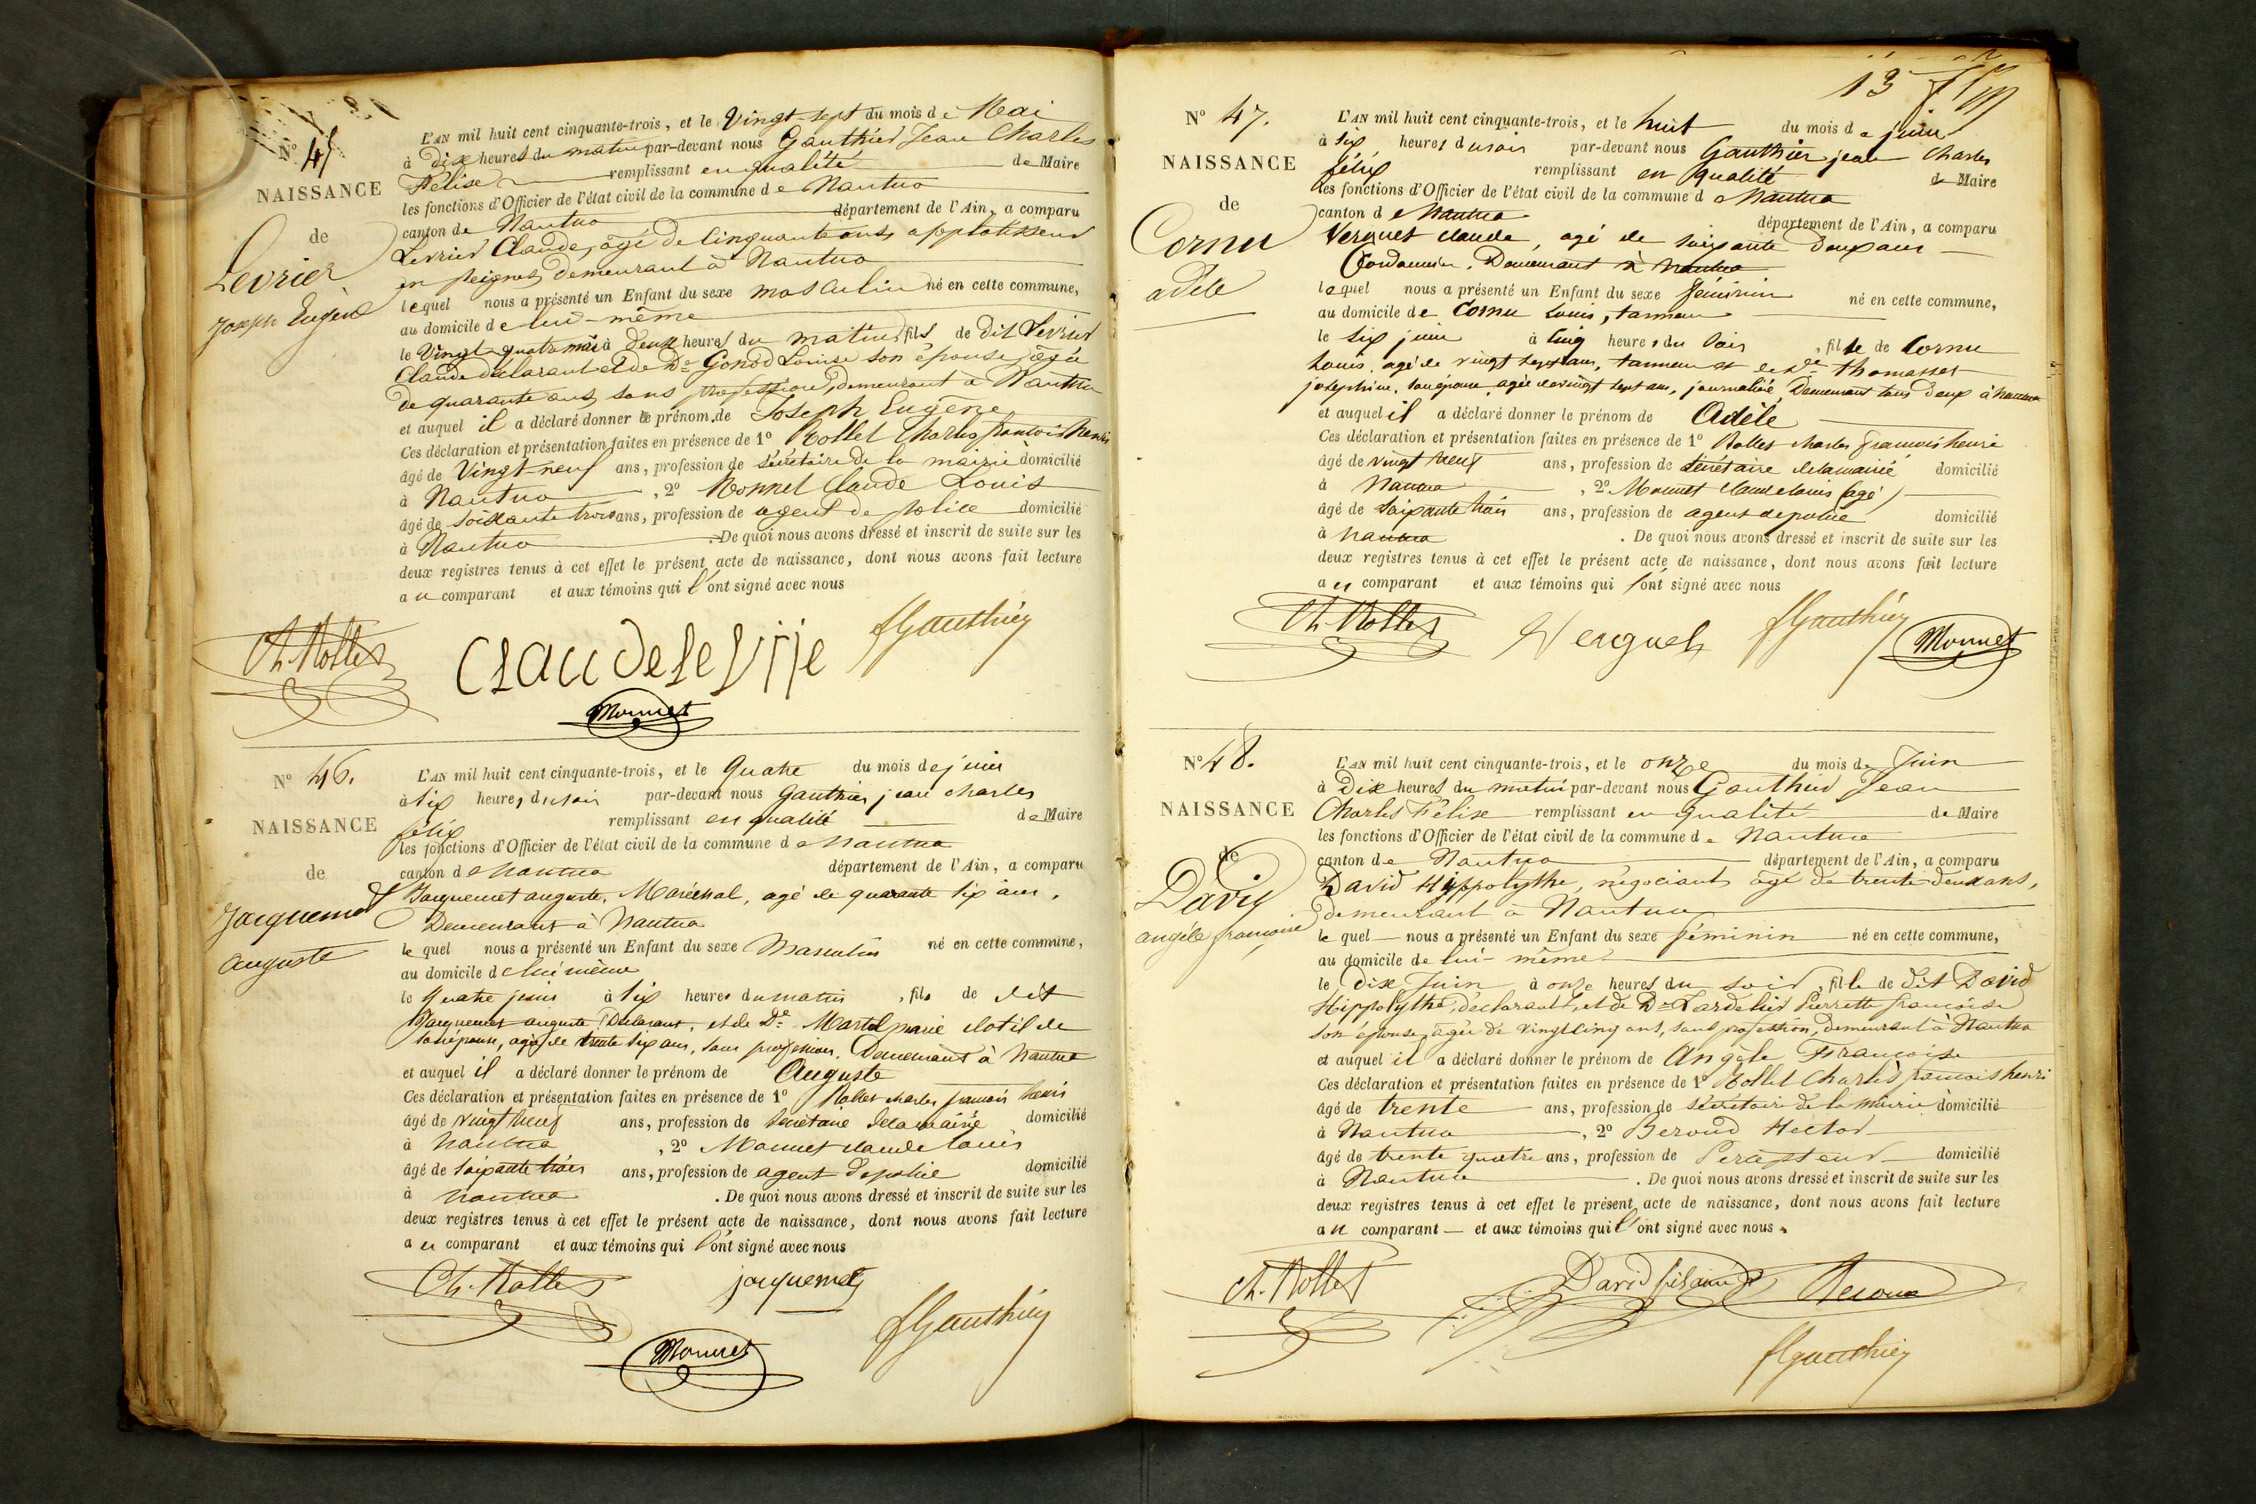 N° 45
NAISSANCE
de
Levrier
Joseph Eugène
L'AN mil huit cent cinquante-trois, et le Vingt-sept du mois de Mai
à Dix heures du matin par-devant nous Gauthier Jean Charles
Félix remplissant en qualité de Maire
les fonctions d'Officier de l'état civil de la commune de Nantua
canton de Nantua département de l'Ain, a comparu
Levrier Claude, âgé de Cinquante ans, applatisseur
en peignes demeurant à Nantua
lequel nous a présenté un Enfant du sexe masculin né en cette commune,
au domicile de lui-même
le Vingt quatre mai à deux heures du matin, fils de dit Levrier
Claude déclarant et de De Gonod Louise son épouse, âgée
de quarante ans, sans profession, demeurant à Nantua
et auquel il a déclaré donner le prénom de Joseph Eugène
Ces déclaration et présentation faites en présence de 1° Rollet Charles françois henri
âgé de Vingt neuf ans, profession de sécrétaire de la mairie domicilié
à Nantua, 2° Monnet Claude Louis
âgé de soixante trois ans, profession de agent de police domicilié
à Nantua. De quoi nous avons dressé et inscrit de suite sur les
deux registres tenus à cet effet le présent acte de naissance, dont nous avons fait lecture
au comparant et aux témoins qui l'ont signé avec nous
Ch. Rollet
Monnet
fGauthier
N° 46.
NAISSANCE
de
Jacquemet
auguste
L'AN mil huit cent cinquante-trois, et le quatre du mois de juin
à six heures du soir par-devant nous Gauthier jean charles
félix remplissant en qualité de Maire
les fonctions d'Officier de l'état civil de la commune de Nantua
canton de Nantua département de l'Ain, a comparu
Jacquemet auguste, Maréchal, agé de quarante six ans,
Demeurant à Nantua
le quel nous a présenté un Enfant du sexe Masculin né en cette commune,
au domicile de lui même
le quatre juin à six heures du matin, fils de dit
Jacquemet auguste Déclarant, et de De Martel marie clotilde
son épouse, agée de trente six ans, sans profession. Demeurant à Nantua
et auquel il a déclaré donner le prénom de Auguste
Ces déclaration et présentation faites en présence de 1° Rollet charles françois henri
âgé de vingt neuf ans, profession de Secrétaire de la mairie domicilié
à Nantua, 2° Monnet claude louis
âgé de soixante trois ans, profession de agent de police domicilié
à Nantua. De quoi nous avons dressé et inscrit de suite sur les
deux registres tenus à cet effet le présent acte de naissance, dont nous avons fait lecture
au comparant et aux témoins qui l'ont signé avec nous
Ch. Rollet
jacquemet
Monnet
fGauthier
13
N° 47.
NAISSANCE
de
Cornu
adèle
L'AN mil huit cent cinquante-trois, et le huit du mois de juin
à six heures du soir par-devant nous Gauthier jean charles
félix remplissant en qualité de Maire
les fonctions d'Officier de l'état civil de la commune de Nantua
canton de Nantua département de l'Ain, a comparu
Verguet claude, agé de soixante Deux ans
Cordonnier. Demeurant à Nantua
lequel nous a présenté un Enfant du sexe féminin né en cette commune,
au domicile de Cornu Louis, tanneur
le six juin à cinq heures du soir, fille de Cornu
Louis, agé de vingt sept ans, tanneur et de De Thomasset
joséphine, son épouse, agée de vingt sept ans, journalière, Demeurant tous deux à Nantua
et auquel il a déclaré donner le prénom de Adèle
Ces déclaration et présentation faites en présence de 1° Rollet charles françois henri
âgé de vingt neuf ans, profession de Sécrétaire de la mairie domicilié
à Nantua, 2° Monnet claude louis (agé)
âgé de soixante trois ans, profession de agent de police domicilié
à Nantua. De quoi nous avons dressé et inscrit de suite sur les
deux registres tenus à cet effet le présent acte de naissance, dont nous avons fait lecture
au comparant et aux témoins qui l'ont signé avec nous
Ch. Rollet
Verguet
fGauthier
Monnet
N° 48.
NAISSANCE
de
David
angèle françoise
L'AN mil huit cent cinquante-trois, et le onze du mois de Juin
à Dix heures du matin par-devant nous Gauthier Jean
Charles Félix remplissant en qualité de Maire
les fonctions d'Officier de l'état civil de la commune de Nantua
canton de Nantua département de l'Ain, a comparu
David Hippolythe, négociant, âgé de trente deux ans,
demeurant à Nantua
le quel nous a présenté un Enfant du sexe féminin né en cette commune,
au domicile de lui-même
le Dix Juin à onze heures du soir, fille de dit David
Hippolythe, déclarant, et de De Pierrette françoise
son épouse, âgée de vingt cinq ans, sans profession, demeurant à Nantua
et auquel il a déclaré donner le prénom de Angèle Françoise
Ces déclaration et présentation faites en présence de 1° Rollet Charles françois henri
âgé de trente ans, profession de sécrétaire de la mairie domicilié
à Nantua, 2° Beroud Hector
âgé de trente quatre ans, profession de Percepteur domicilié
à Nantua. De quoi nous avons dressé et inscrit de suite sur les
deux registres tenus à cet effet le présent acte de naissance, dont nous avons fait lecture
au comparant et aux témoins qui l'ont signé avec nous.
Ch. Rollet
David fils ainé
Beroud
fGauthier